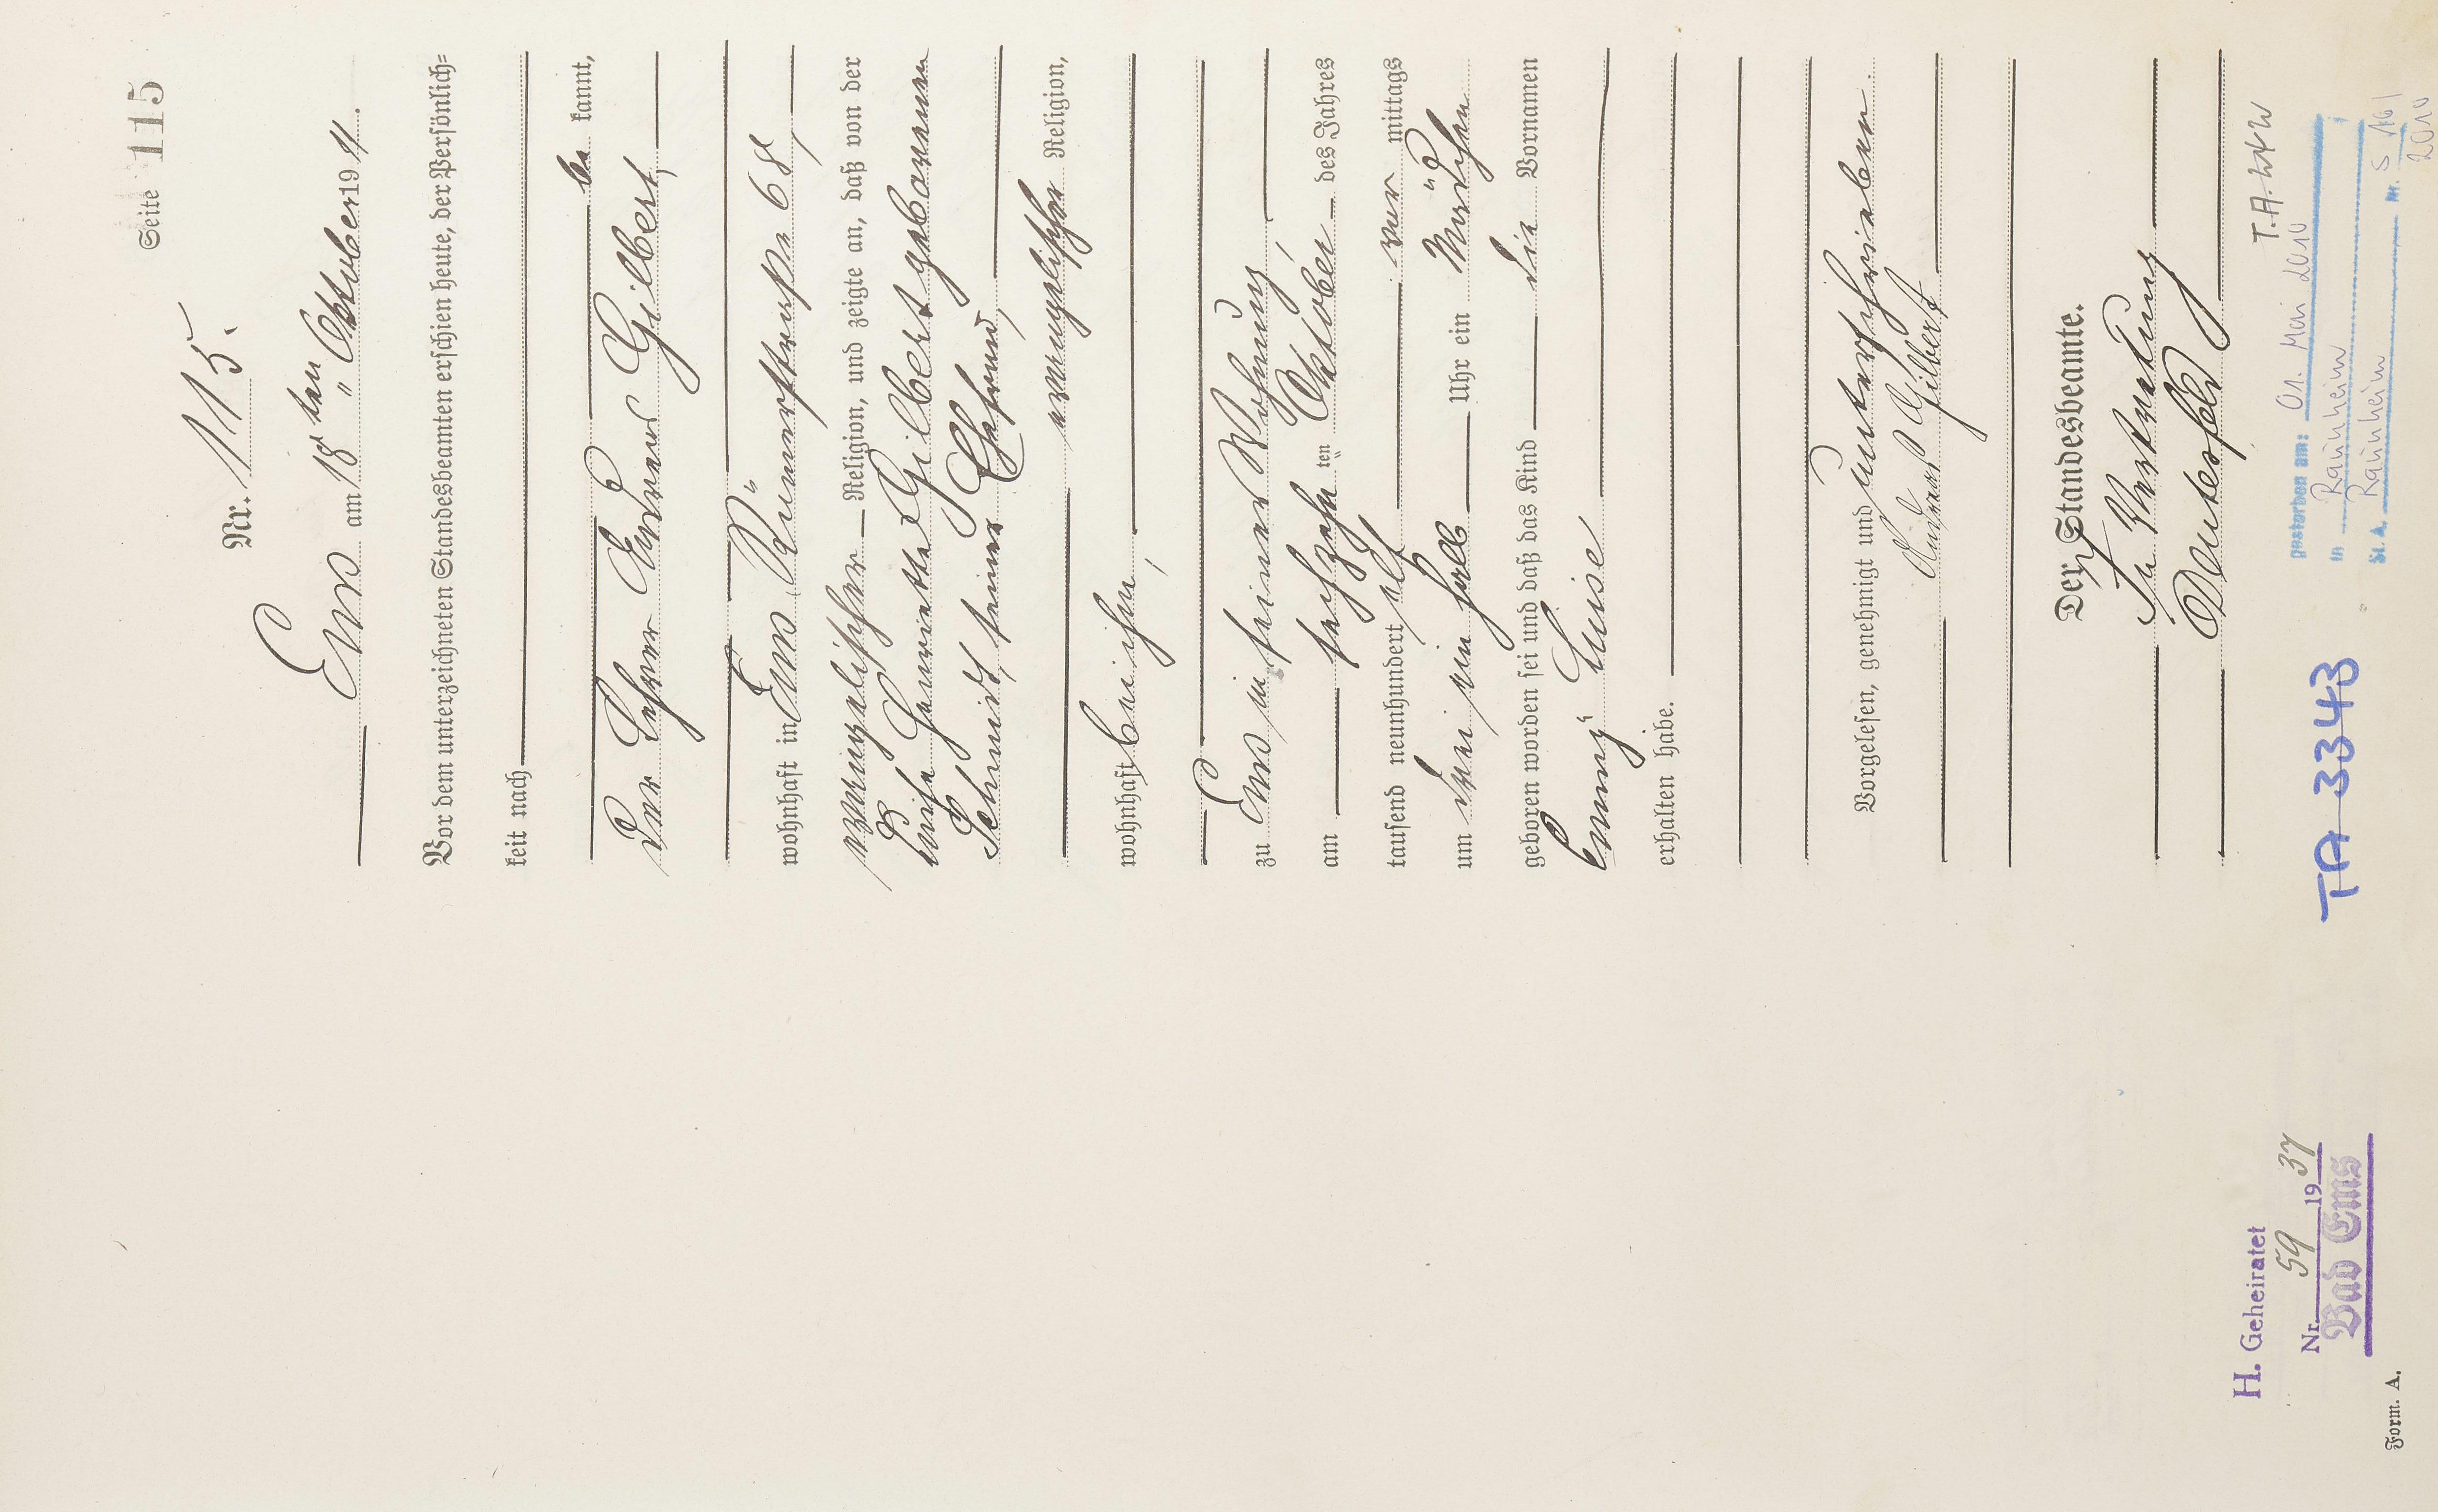 Seite 115
Nr. 115.
Ems am 18ten Oktober 1911.
Vor dem unterzeichneten Standesbeamten erschien heute, der Persönlich=
keit nach
be kannt,
der Lehrer Andreas Gilbert,
wohnhaft in Ems, Römerstraße 68,
evangelischer Religion, und zeigte an, daß von der
Henriette Gilbert geborenen
Schmidt, seiner Ehefrau,
evangelischer Religion,
wohnhaft bei ihm,
zu Ems in seiner Wohnung,
am sechzehnten Oktober des Jahres
tausend neunhundert elf vor mittags
um drei ein halb Uhr ein Mädchen
geboren worden sei und daß das Kind die Vornamen
Emmy Luise
erhalten habe.
Vorgelesen, genehmigt und unterschrieben.
Andreas Gilbert
Der Standesbeamte.
In Vertretung
T.A. 3343
gestorben am: 01. Mai 2010
in Raunheim
St. A. Raunheim Nr. S 16/
2010
H. Geheiratet
Nr. 59 19 37
Bad Ems
Form. A.